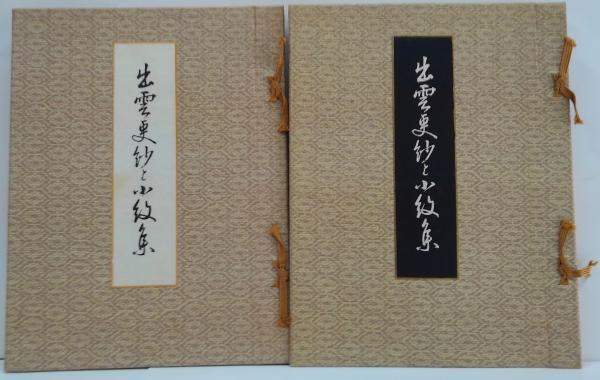 出雲更紗と小紋集
出雲更紗と小紋集